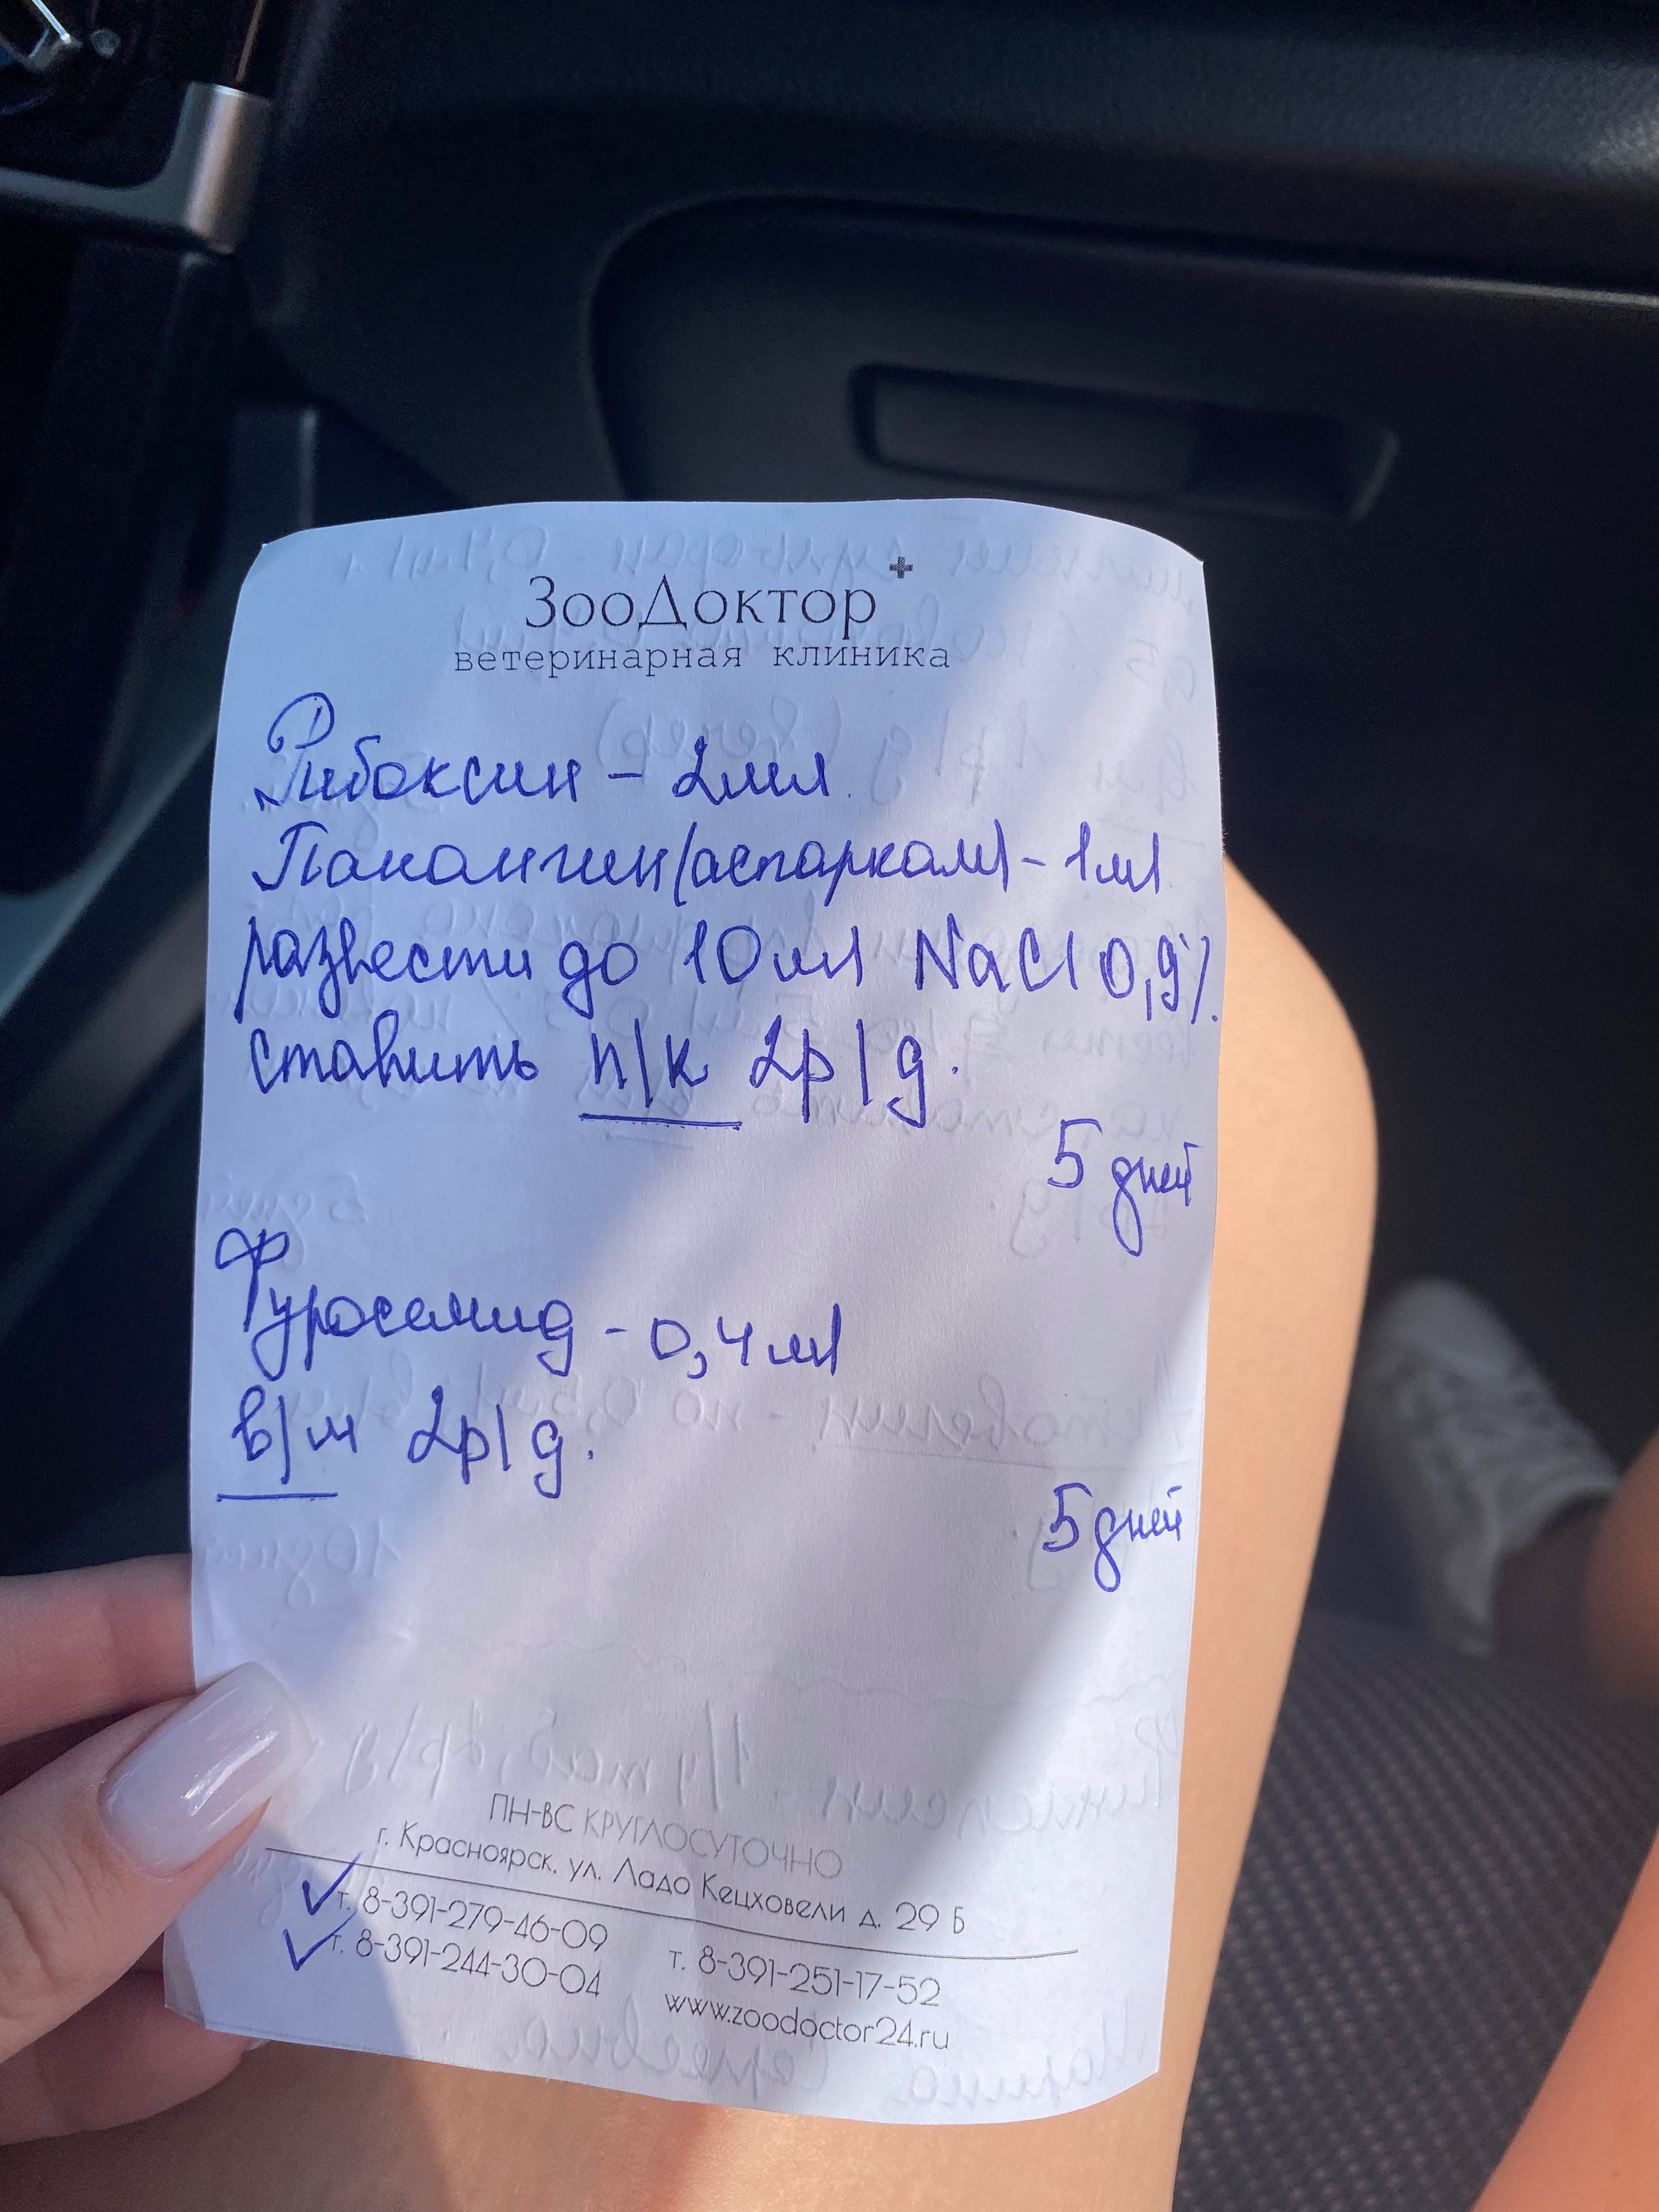 ЗооДоктор
ветеринарная клиника
Рибоксин - 2мл.
Панангин(аспаркам) - 1мл
развести до 10мл NaCl 0,9%.
ставить п/к 2р/д.
5 дней
Фуросемид - 0,4мл
в/м 2р/д.
5 дней
ПН-ВС КРУГЛОСУТОЧНО
г. Красноярск. ул. Ладо Кецховели д. 29 Б
т. 8-391-279-46-09
т. 8-391-244-30-04
т. 8-391-251-17-52
www.zoodoctor24.ru